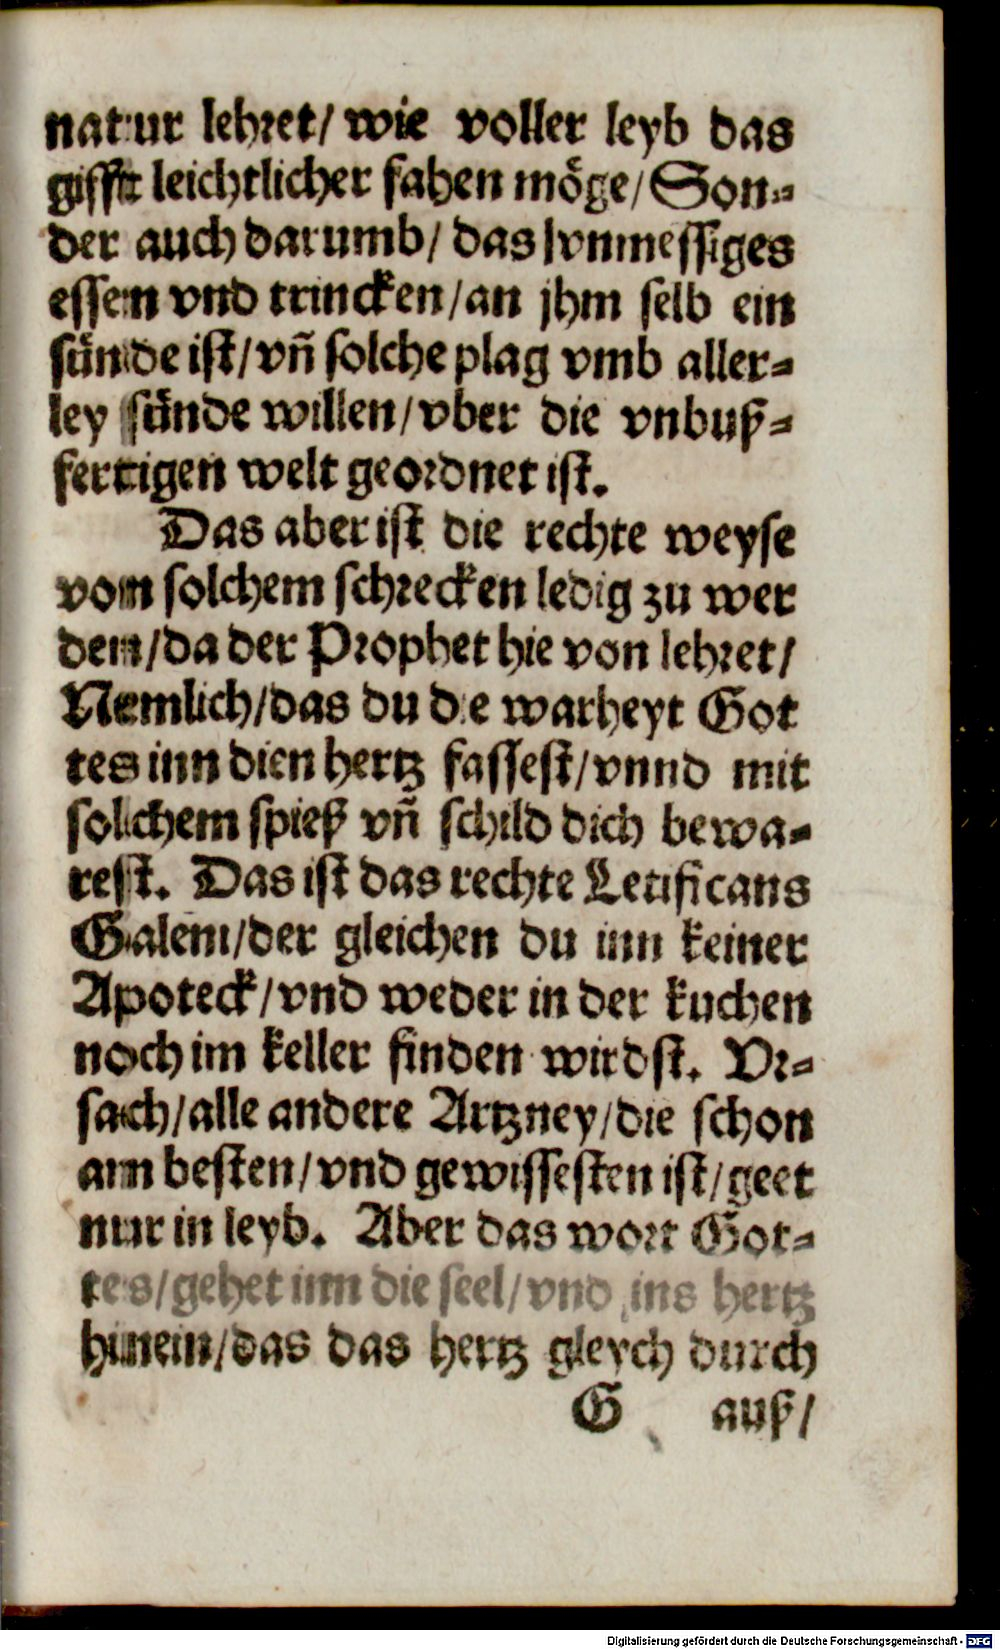 natur lehret/ wie voller leyb das
gifft leichtlicher fahen möge/ Son⸗
der auch darumb/ das vnmessiges
essen vnd trincken/ an jhm selb ein
sünde ist/ vñ solche plag vmb aller⸗
ley sünde willen/ vber die vnbuß⸗
fertigen welt geordnet ist.
Das aber ist die rechte weyse
von solchem schrecken ledig zu wer
den/ da der Prophet hie von lehret/
Nemlich/ das du die warheyt Got
tes inn dien hertz fassest/ vnnd mit
solchem spieß vñ schild dich bewa⸗
rest. Das ist das rechte Letificans
Galeni/ der gleichen du inn keiner
Apoteck/ vnd weder in der kuchen
noch im keller finden wirdst. Vr⸗
sach/ alle andere Artzney/ die schon
am besten/ vnd gewissesten ist/ geet
nur in leyb. Aber das wort Got⸗
tes/ gehet inn die seel/ vnd ins hertz
hinein/ das das hertz gleych durch
G auß/
Digitalisierung gefördert durch die Deutsche Forschungsgemeinschaft - DFG